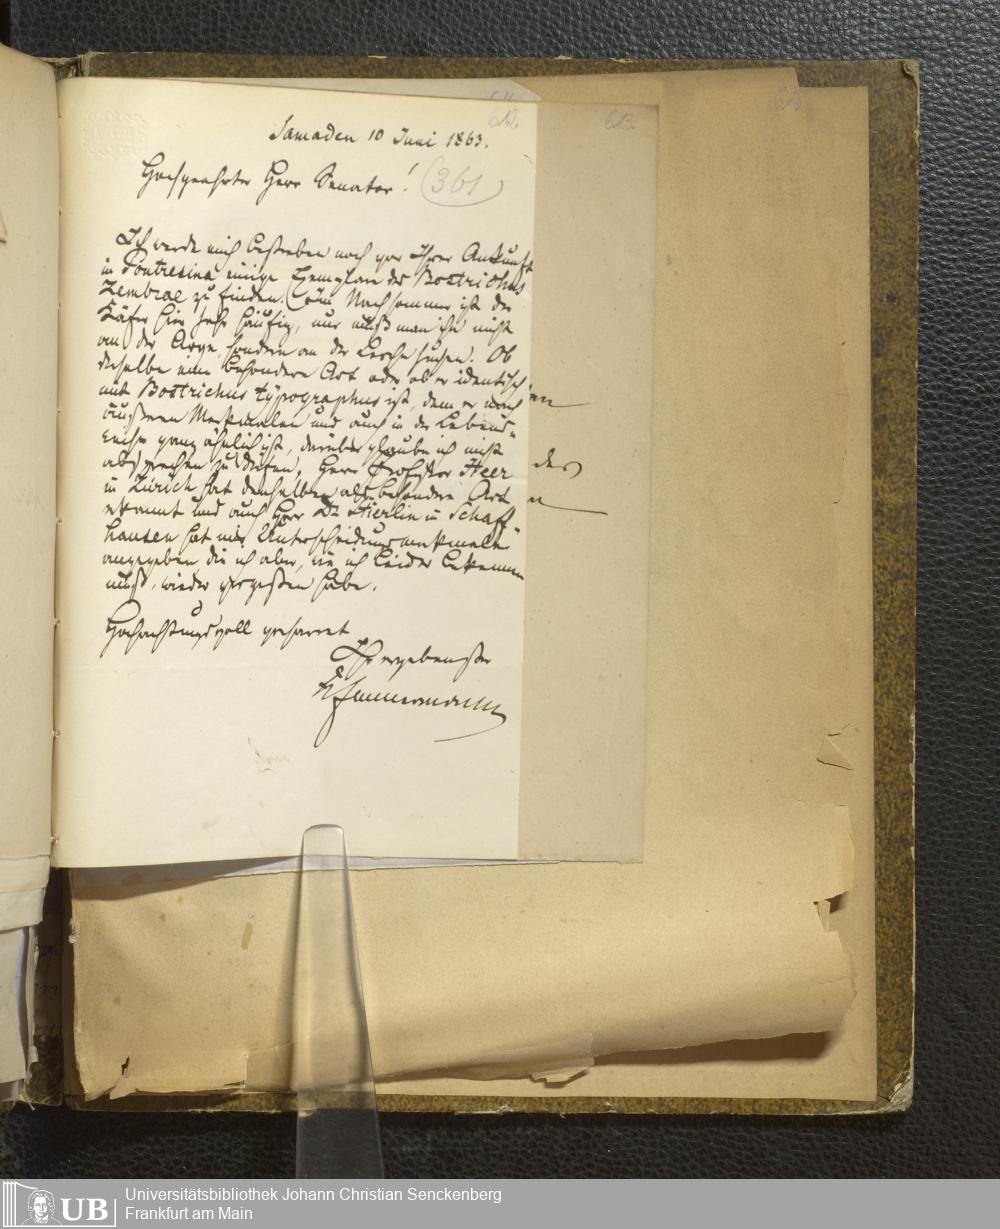 612.
613.
614
Samaden 10 Juni 1863.
Hochgeehrter Herr Senator!
(361)
Ich werde mich bestreben noch vor Ihrer Ankunft
in Pontresina einige Exemplare des Bostrichus
Zembrae zu finden. (Im Nachsommer ist der
Käfer hier sehr häufig, nur muß man ihn nicht
an der Arve, sondern an der Lerche suchen). Ob
derselbe eine besondere Art oder ob er identisch
mit Bostrichus typographus ist, dem er nach
äußeren Merkmalen und auch in der Lebens-
weise ganz ähnlich ist, darüber glaube ich nicht
absprechen zu dürfen. Herr Professor Heer
in Zürich hat denselben als besondere Art
erkannt und auch Herr Dr Stierlin in Schaff-
hausen hat mir Unterscheidungsmerkmale
angegeben, die ich aber, wie ich leider bekennen
muß, wieder vergeßen habe.
Hochachtungsvoll verharret
Ihr ergebenster
Emmermann
des
Universitätsbibliothek Johann Christian Senckenberg
Frankfurt am Main
UB